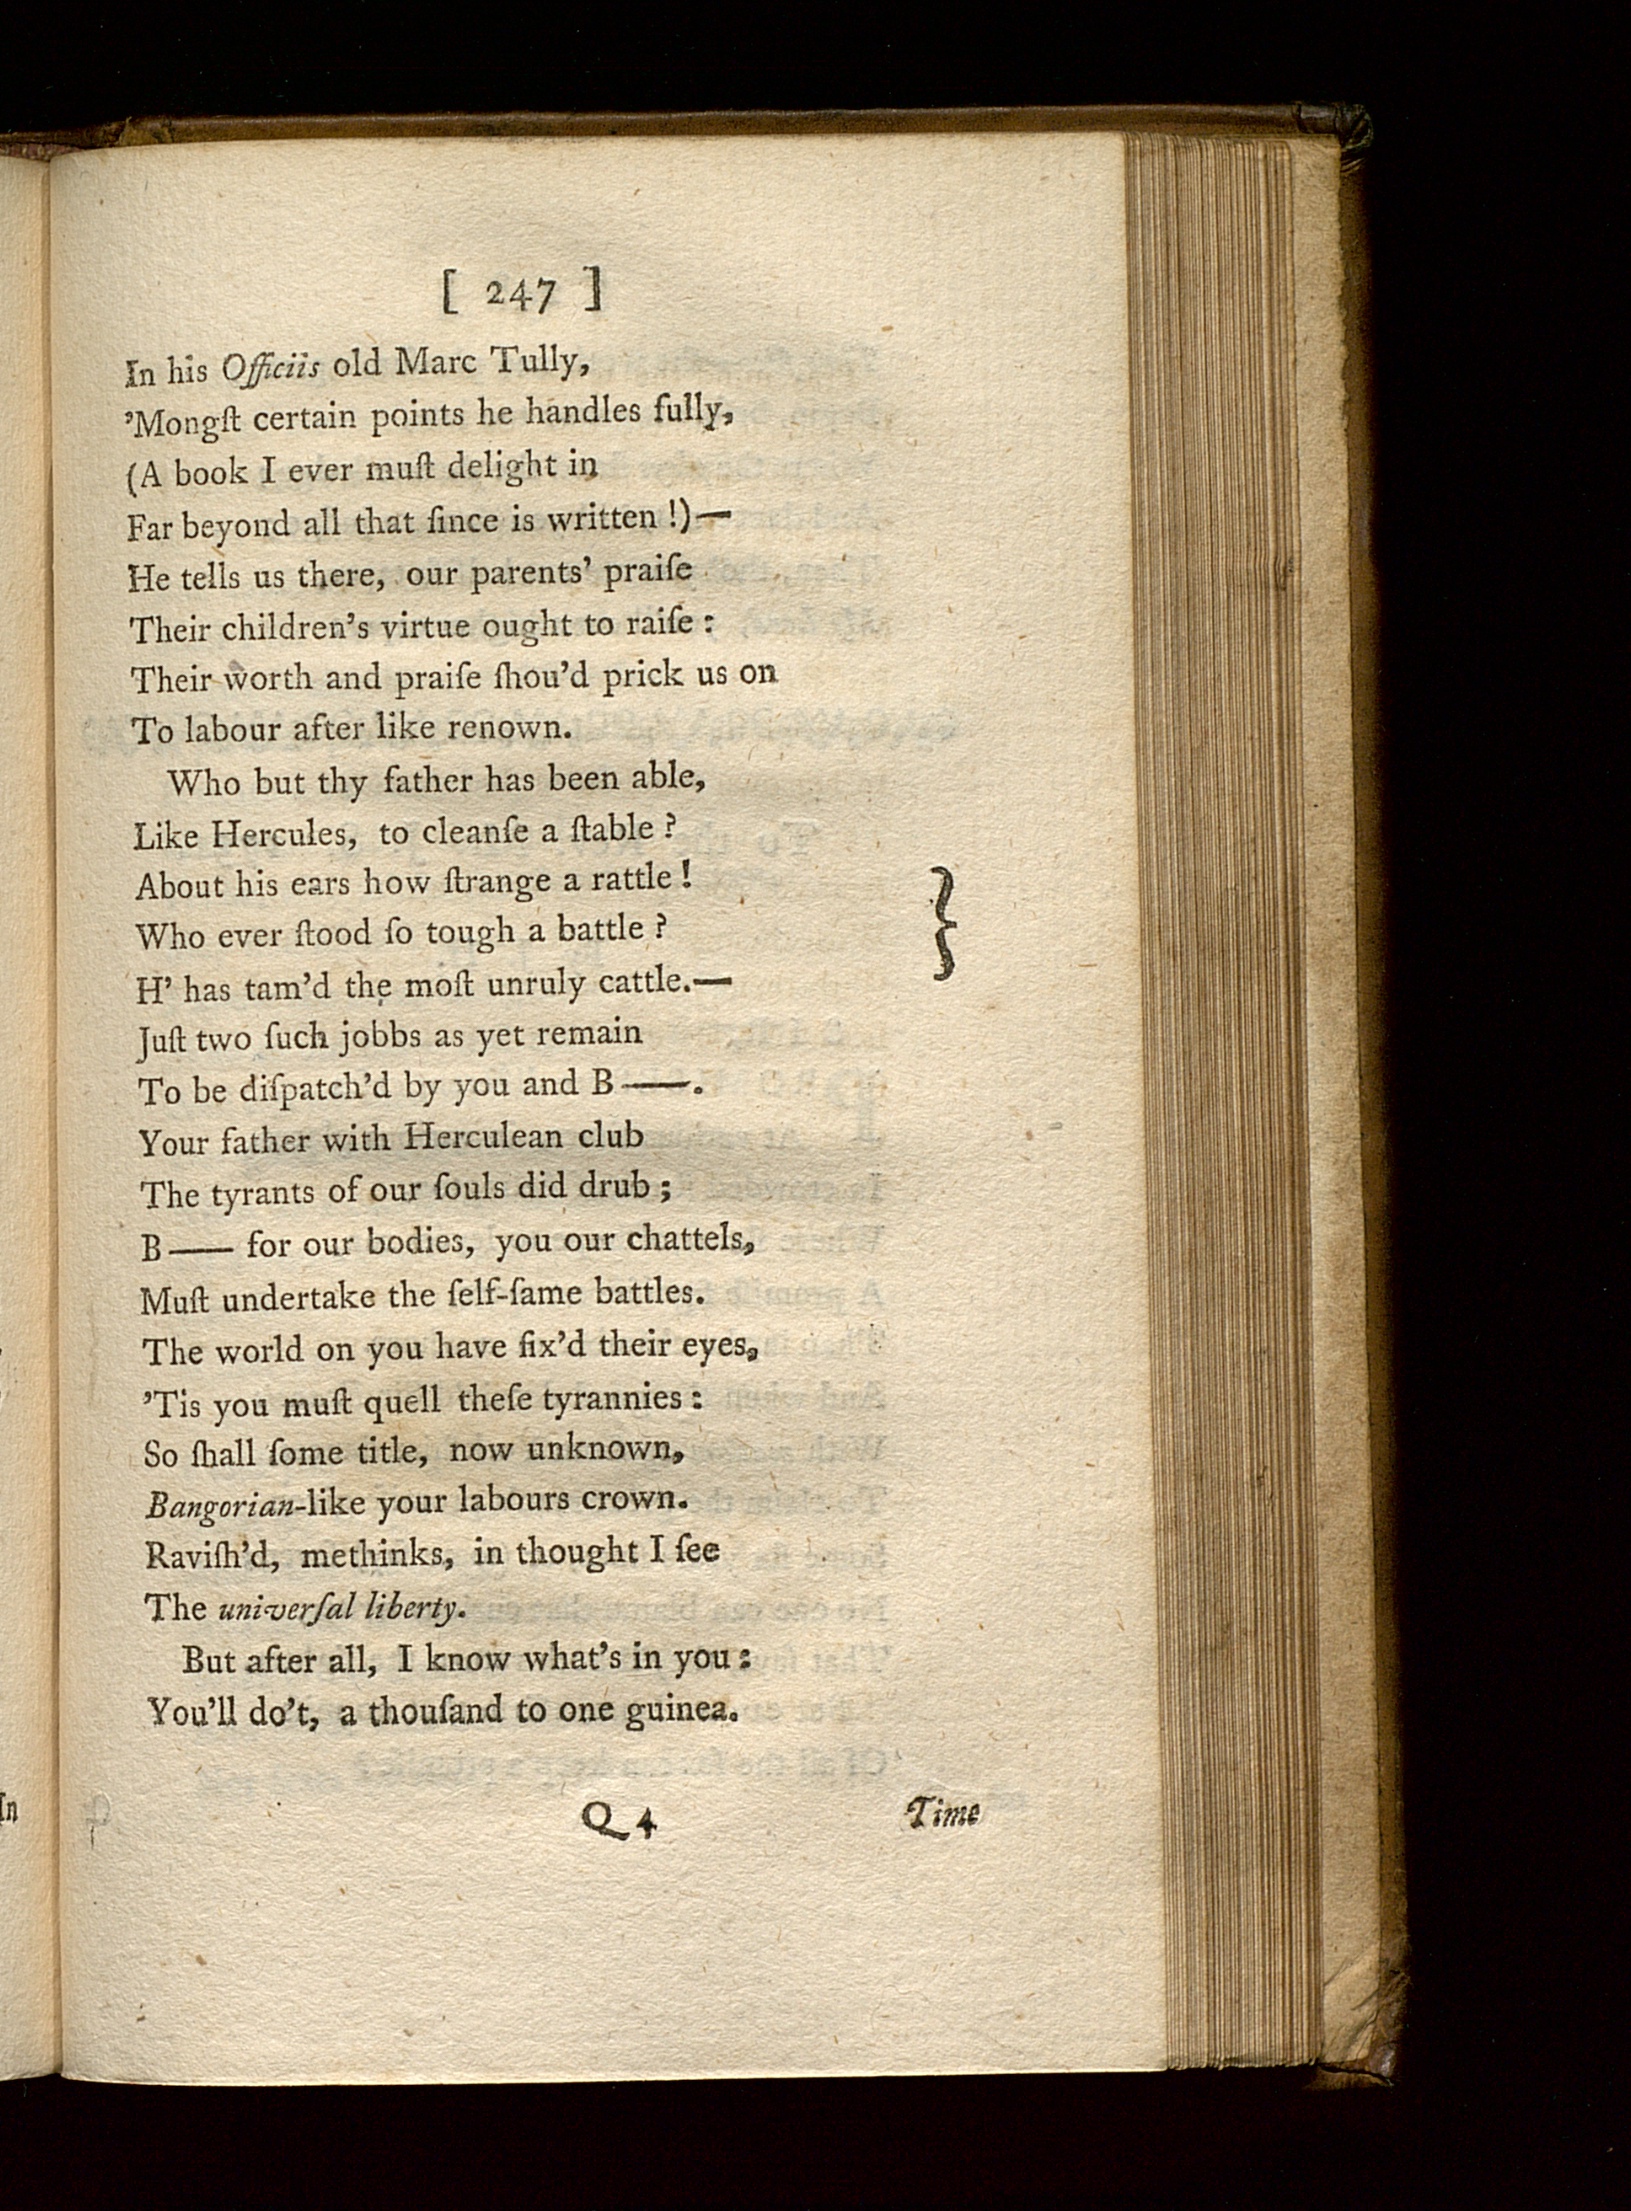 [ 247 ]
In his Officiis old Marc Tully,
’Mongſt certain points he handles fully,
(A book I ever muſt delight in
Far beyond all that ſince is written !)—
He tells us there, our parents’ praiſe
Their children’s virtue ought to raiſe :
Their worth and praiſe ſhou’d prick us on
To labour after like renown.
Who but thy father has been able,
Like Hercules, to cleanſe a ſtable ?
About his ears how ſtrange a rattle !
Who ever ſtood ſo tough a battle ?
H’ has tam’d the moſt unruly cattle.—
Juſt two ſuch jobbs as yet remain
To be diſpatch’d by you and B——.
Your father with Herculean club
The tyrants of our ſouls did drub ;
B—— for our bodies, you our chattels,
Muſt undertake the ſelf-ſame battles.
The world on you have fix’d their eyes,
’Tis you muſt quell theſe tyrannies :
So ſhall ſome title, now unknown,
Bangorian-like your labours crown.
Raviſh’d, methinks, in thought I ſee
The univerſal liberty.
But after all, I know what’s in you :
You’ll do’t, a thouſand to one guinea.
In
Q 4
Time